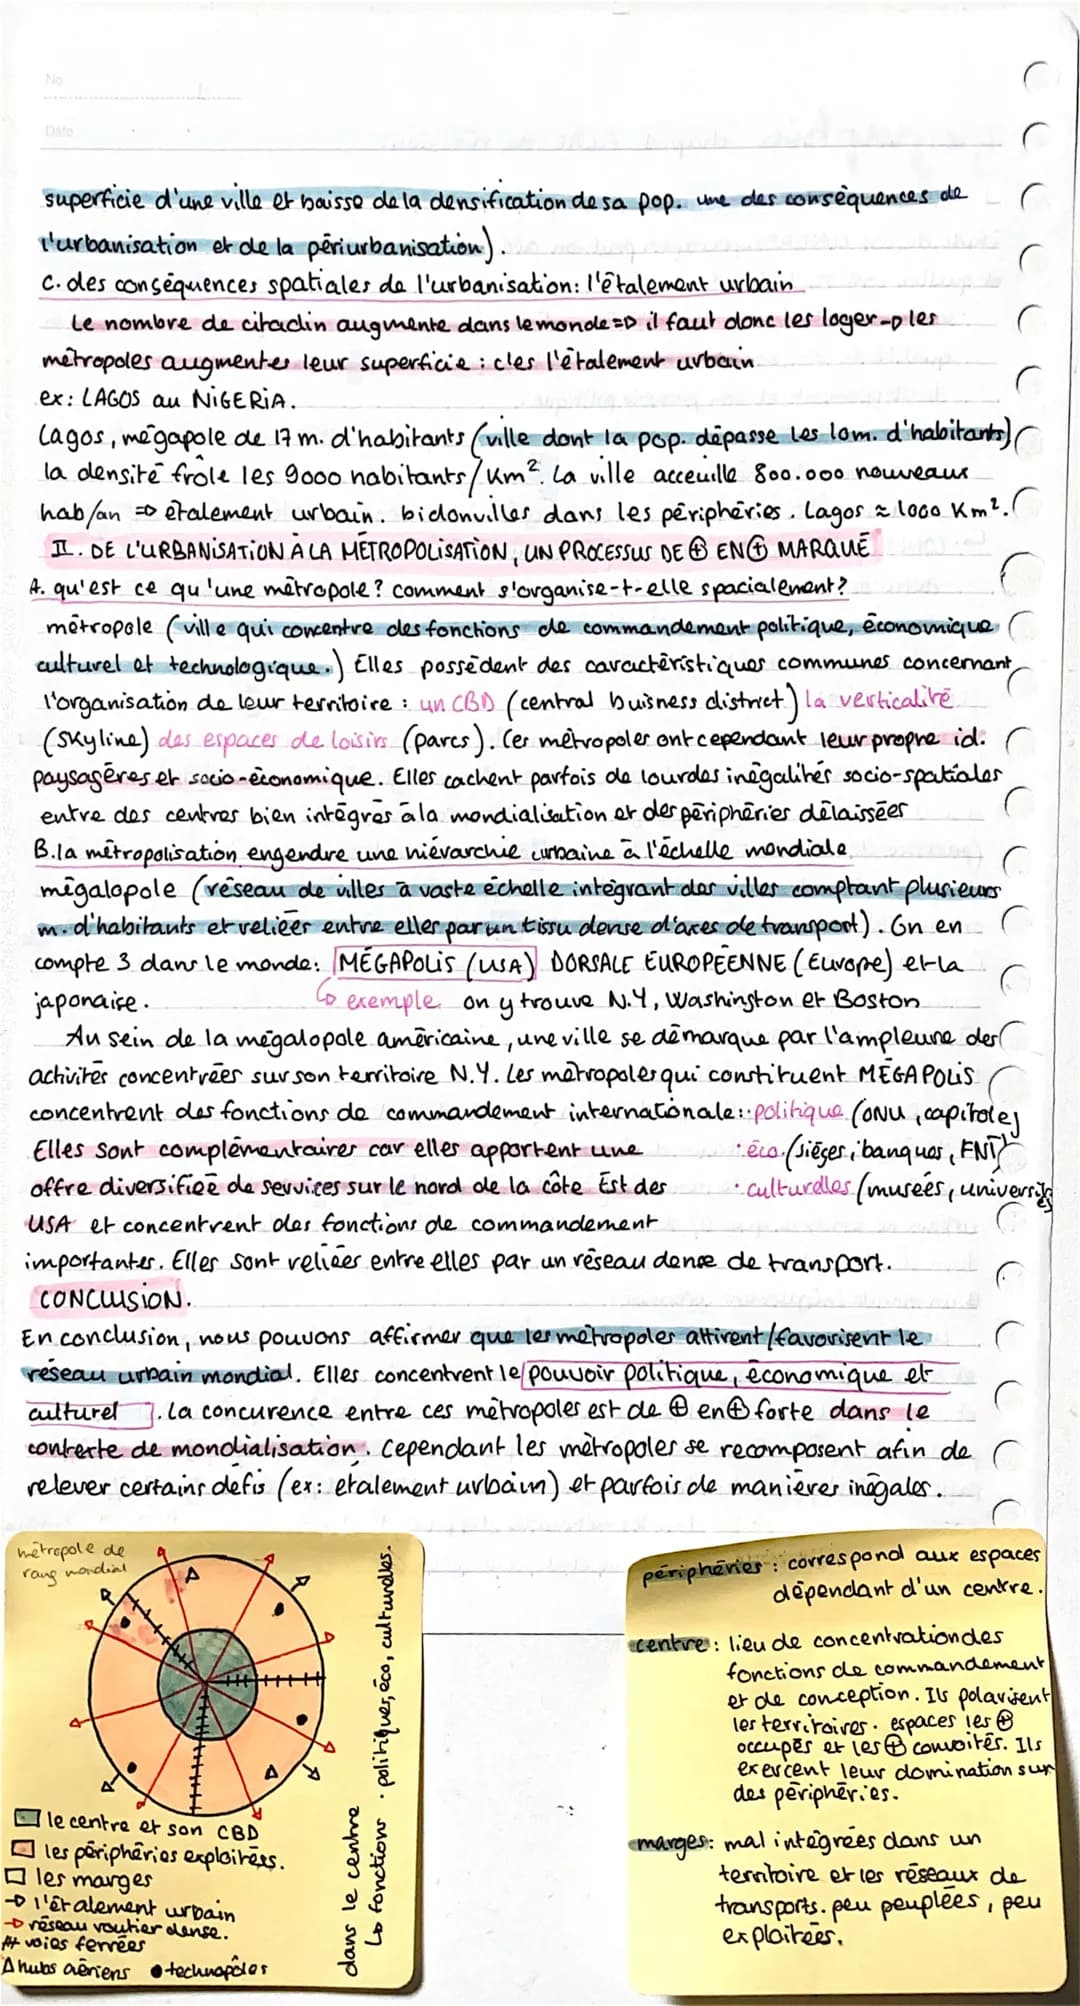 No
Date
superficie d'une ville et baisse de la densification de sa pop. une des conséquences de
l'urbanisation et de la périurbanisation).
C. des conséquences spatiales de l'urbanisation: l'étalement urbain
Le nombre de citadin augmente dans le monde => il faut donc les loger → les
métropoles augmentes leur superficie : c'est l'étalement urbain.
ex: LAGOS au NIGERIA.
Lagos, mégapole de 17 m. d'habitants (ville dont la pop. dépasse les 10m. d'habitants)
la densité frôle les 9000 habitants/km². La ville acceuille 800.000 nouveaux
hab/an => étalement urbain. bidonvilles dans les périphéries. Lagos ≈ 1000 Km².
II. DE L'URBANISATION À LA MÉTROPOLISATION, UN PROCESSUS DE ⊕ EN ⊕ MARQUÉ
A. qu'est ce qu'une métropole? comment s'organise-t-elle spacialement?
métropole (ville qui concentre des fonctions de commandement politique, économique
culturel et technologique.) Elles possèdent des caractéristiques communes concernant
l'organisation de leur territoire : un CBD (central buisness district) la verticalité
(skyline) des espaces de loisirs (parcs). Ces métropoles ont cependant leur propre id.
paysagères et socio-économique. Elles cachent parfois de lourdes inégalités socio-spatiales
entre des centres bien intégrés à la mondialisation et des périphéries délaissées
B. la métropolisation engendre une hiérarchie urbaine à l'échelle mondiale
mégalopole (réseau de villes à vaste échelle intégrant des villes comptant plusieurs
m. d'habitants et reliées entre elles par un tissu dense d'axes de transport). On en
compte 3 dans le monde: MÉGAPOLIS (USA) DORSALE EUROPÉENNE (Europe) et la
japonaise. ↳ exemple on y trouve N.Y, Washington et Boston
Au sein de la mégalopole américaine, une ville se démarque par l'ampleure des
activités concentrées sur son territoire N.Y. Les métropoles qui constituent MÉGAPOLIS
concentrent des fonctions de commandement internationale: · politique (ONU, capitole)
Elles sont complémentaires car elles apportent une · éco. (sièges, banques, FNT)
offre diversifiée de services sur le nord de la côte Est des · culturelles (musées, universités
USA et concentrent des fonctions de commandement
importantes. Elles sont reliées entre elles par un réseau dense de transport.
CONCLUSION.
En conclusion, nous pouvons affirmer que les métropoles attirent/favorisent le
réseau urbain mondial. Elles concentrent le pouvoir politique, économique et
culturel. La concurence entre ces métropoles est de ⊕ en ⊕ forte dans le
contexte de mondialisation. Cependant les métropoles se recomposent afin de
relever certains défis (ex: étalement urbain) et parfois de manières inégales.
métropole de
rang mondial
le centre et son CBD
les périphéries exploitées.
les marges
→ l'étalement urbain
→ réseau routier dense.
voies ferrées
Δ hubs aériens ● technopôles
dans le centre
↳ fonctions · politiques, éco, culturelles.
périphéries : correspond aux espaces
dépendant d'un centre.
centre : lieu de concentration des
fonctions de commandement
et de conception. Ils polarisent
les territoires. espaces les ⊕
occupés et les ⊕ convoités. Ils
exercent leur domination sur
des périphéries.
marges: mal intégrées dans un
territoire et les réseaux de
transports. peu peuplées, peu
exploitées.